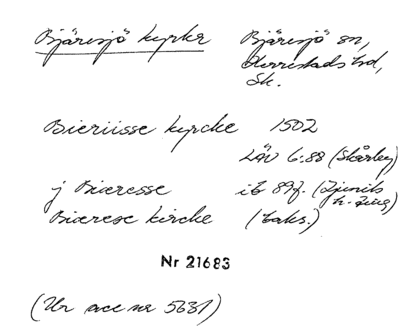 Bjäresjö kyrka Bjäresjö sn,
Herrestads hd,
Sk.
Bieriisse kyrcke 1502
LÄU 6:88 (Skårby)
j Biæresse ib 89f. (Ljunits
h. ting)
Biærese kircke (baks.)
Nr 21683
(Ur acc nr 5631)